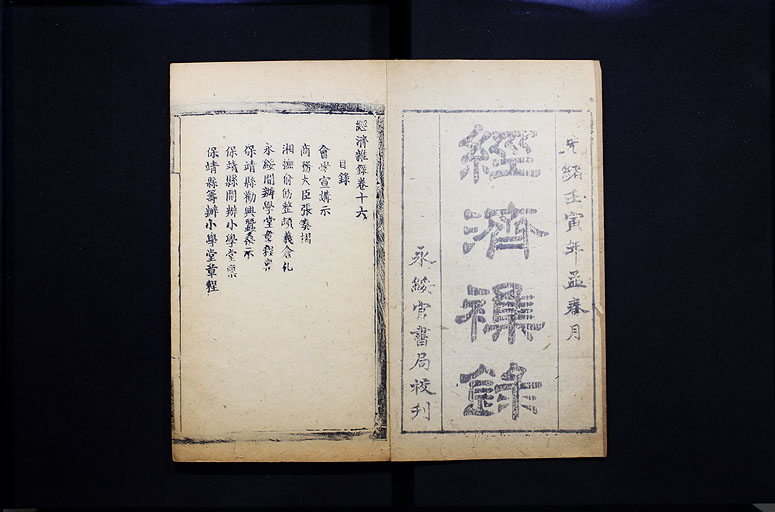 光緒壬寅年孟春月
經濟襍錄
永綏官書局校刊
經濟雜錄卷十六
目錄
會學宣講示
商務大臣張奏摺
湘撫俞飭整頓義倉札
永綏開辦學堂章程稟
保靖縣勸興蠶桑示
保靖縣開辦小學堂稟
保靖縣籌辦小學堂章程